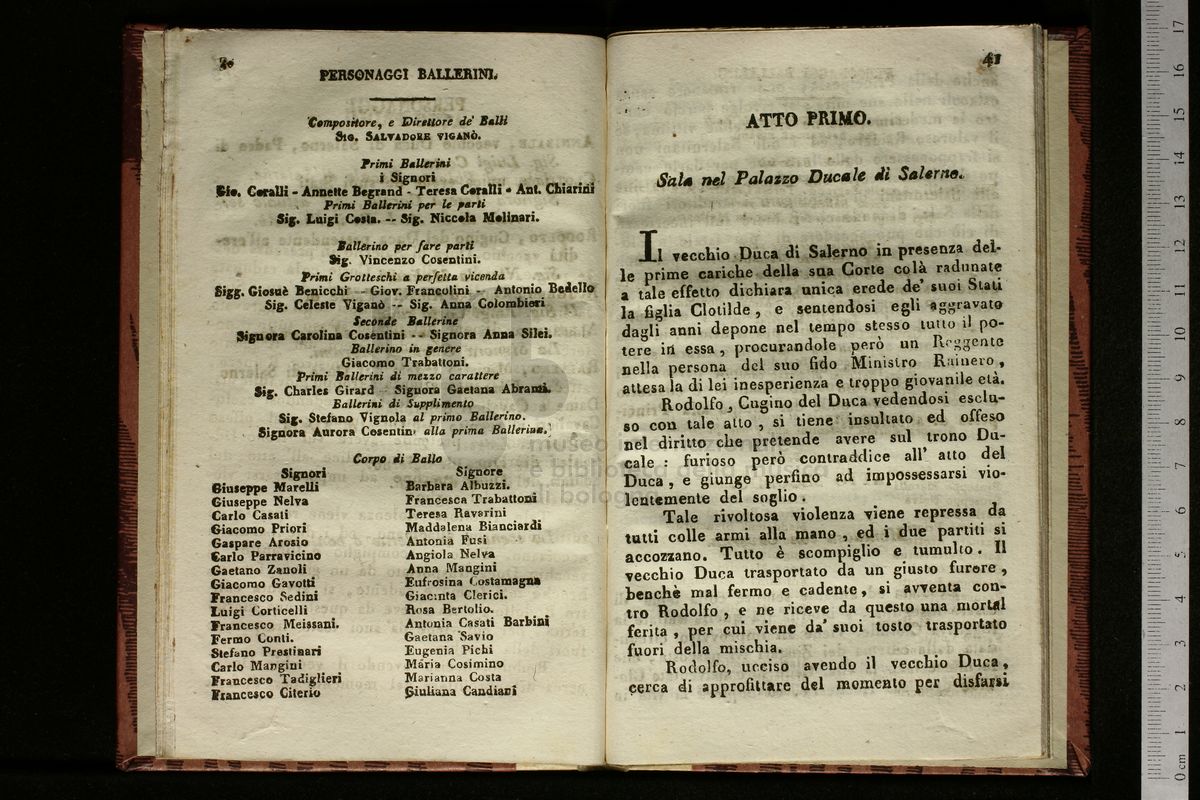 PERSONAGGI BALLERINI.
Compositore, e Direttore de' Balli
SIG. SALVADORE VIGANÒ.
Primi Ballerini
i Signori
Gio. Coralli - Annette Begrand - Teresa Coralli - Ant. Chiarini
Primi Ballerini per le parti
Sig. Luigi Costa. -- Sig. Niccola Molinari.
Ballerino per fare parti
Sig. Vincenzo Cosentini.
Primi Grotteschi a perfetta vicenda
Sigg. Giosuè Benicchi -- Giov. Francolini -- Antonio Bedello
Sig. Celeste Viganò -- Sig. Anna Colombieri
Seconde Ballerine
Signora Carolina Cosentini -- Signora Anna Silei.
Ballerino in genere
Giacomo Trabattoni.
Primi Ballerini di mezzo carattere
Sig. Charles Girard -- Signora Gaetana Abrami.
Ballerini di Supplimento
Sig. Stefano Vignola al primo Ballerino.
Signora Aurora Cosentini alla prima Ballerina.
Corpo di Ballo
Signori
Giuseppe Marelli
Giuseppe Nelva
Carlo Casati
Giacomo Priori
Gaspare Arosio
Carlo Parravicino
Gaetano Zanoli
Giacomo Gavotti
Francesco Sedini
Luigi Corticelli
Francesco Meissani.
Fermo Conti.
Stefano Prestinari
Carlo Mangini
Francesco Tadiglieri
Francesco Citerio
Signore
Barbara Albuzzi.
Francesca Trabattoni
Teresa Ravarini
Maddalena Bianciardi
Antonia Fusi
Angiola Nelva
Anna Mangini
Eufrosina Costamagna
Giacinta Clerici.
Rosa Bertolio.
Antonia Casati Barbini
Gaetana Savio
Eugenia Pichi
Maria Cosimino
Marianna Costa
Giuliana Candiani
41
ATTO PRIMO.
Sala nel Palazzo Ducale di Salerno.
Il vecchio Duca di Salerno in presenza del-
le prime cariche della sua Corte colà radunate
a tale effetto dichiara unica erede de' suoi Stati
la figlia Clotilde, e sentendosi egli aggravato
dagli anni depone nel tempo stesso tutto il po-
tere in essa, procurandole però un Reggente
nella persona del suo fido Ministro Rainero,
attesa la di lei inesperienza e troppo giovanile età.
Rodolfo, Cugino del Duca vedendosi esclu-
so con tale atto, si tiene insultato ed offeso
nel diritto che pretende avere sul trono Du-
cale : furioso però contraddice all' atto del
Duca, e giunge perfino ad impossessarsi vio-
lentemente del soglio.
Tale rivoltosa violenza viene repressa da
tutti colle armi alla mano, ed i due partiti si
accozzano. Tutto è scompiglio e tumulto. Il
vecchio Duca trasportato da un giusto furore,
benchè mal fermo e cadente, si avventa con-
tro Rodolfo, e ne riceve da questo una mortal
ferita, per cui viene da' suoi tosto trasportato
fuori della mischia.
Rodolfo, ucciso avendo il vecchio Duca,
cerca di approfittare del momento per disfarsi
museo internazionale
e biblioteca della musica
di bologna
0 cm 1 2 3 4 5 6 7 8 9 10 11 12 13 14 15 16 17